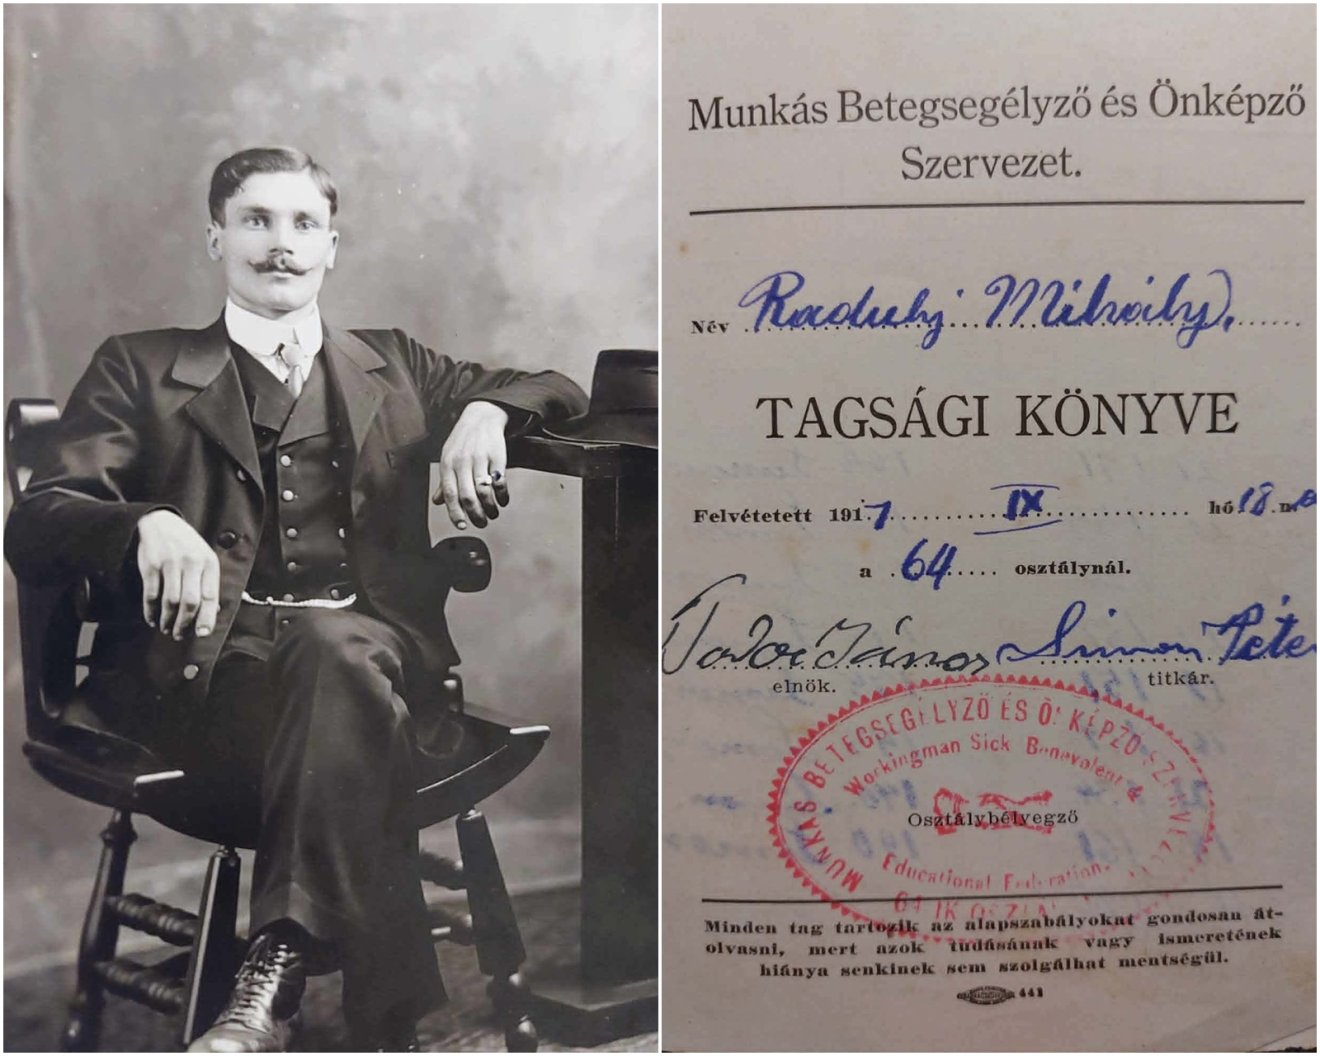 Munkás Betegsegélyző és Önképző
Szervezet.
Név Raduly Mihály.
TAGSÁGI KÖNYVE
Felvétetett 1917 IX hó 18 n.
a 64 osztálynál.
János Simon Péter
elnök. titkár.
MUNKÁS BETEGSEGÉLYZŐ ÉS Ö KÉPZŐ SZERVEZ
Workingman Sick Benevolent &
Osztálybélyegző
Educational Federation.
64 IK OSZTÁ
Minden tag tartozik az alapszabályokat gondosan át-
olvasni, mert azok tudásának vagy ismeretének
hiánya senkinek sem szolgálhat mentségül.
441